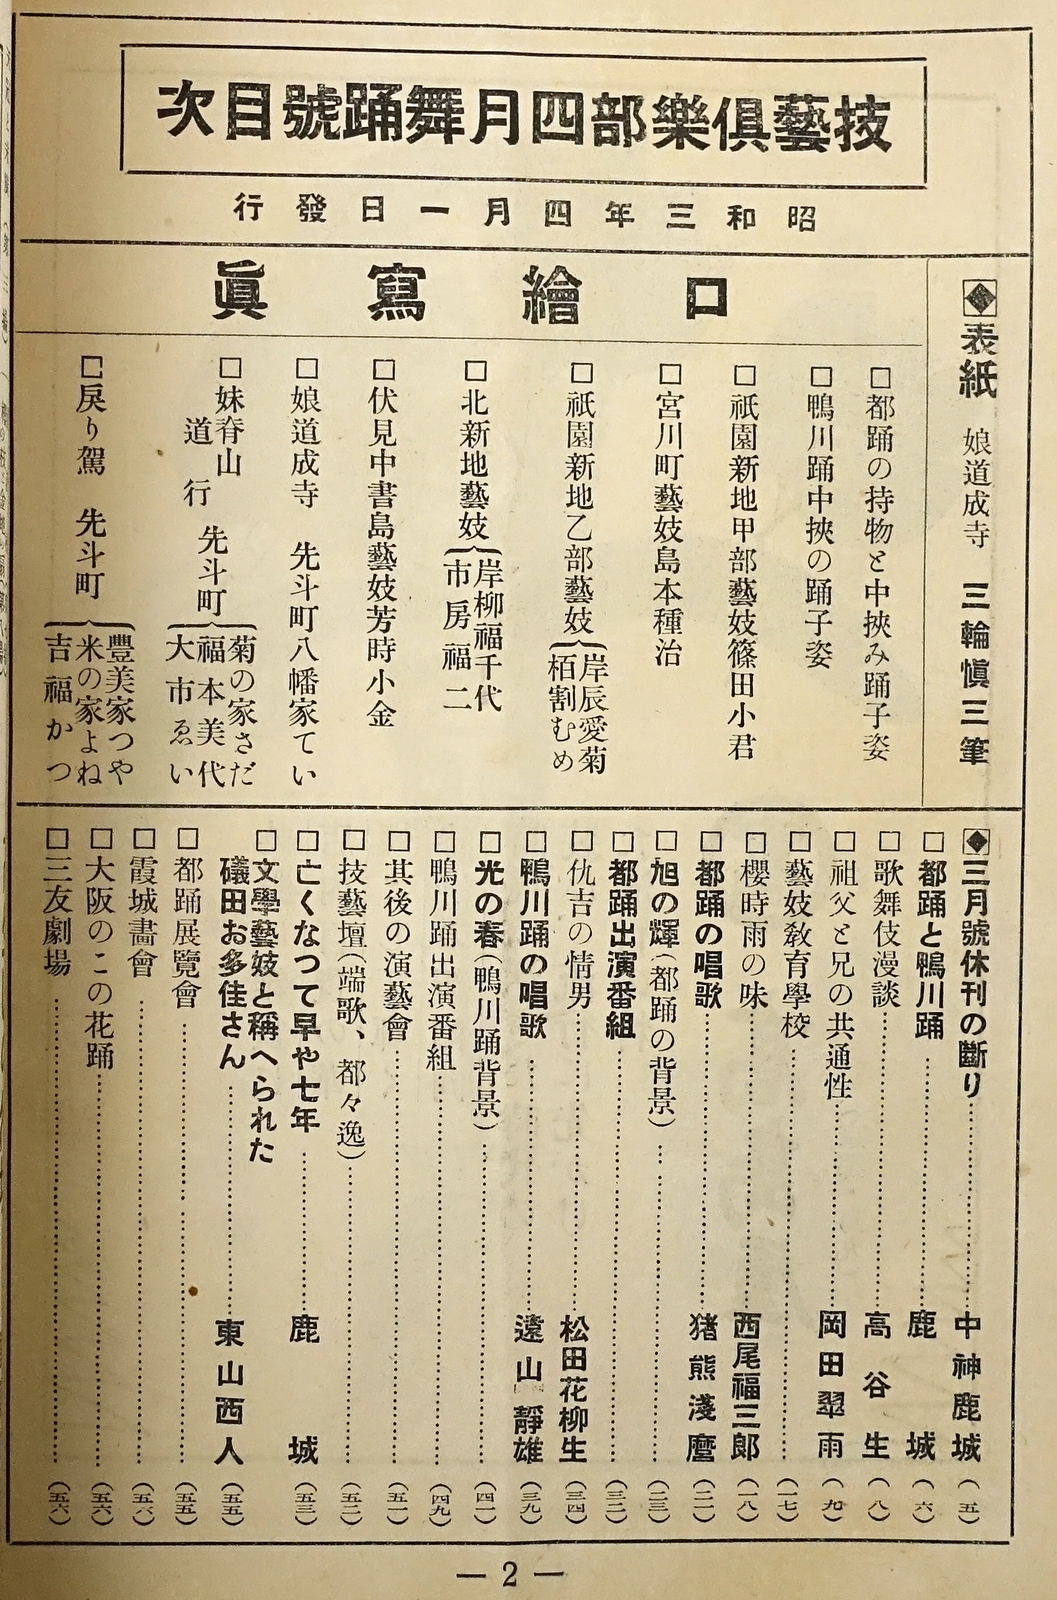 技藝倶樂部四月舞踊號目次
昭和三年四月一日發行
◆表紙 娘道成寺 三輪愼三筆
口繪寫眞
□都踊の持物と中挾み踊子姿
□鴨川踊中挾の踊子姿
□祇園新地甲部藝妓篠田小君
□宮川町藝妓島本種治
□祇園新地乙部藝妓
岸辰愛菊
栢割むめ
□北新地藝妓
岸柳福千代
市房福二
□伏見中書島藝妓芳時小金
□娘道成寺 先斗町八幡家てい
□妹脊山
道行
先斗町
菊の家さだ
福本美代
大市ゑい
□戻り駕 先斗町
豐美家つや
米の家よね
吉福かつ
◆三月號休刊の斷り 中神鹿城 (五)
□都踊と鴨川踊 鹿城 (六)
□歌舞伎漫談 高谷生 (八)
□祖父と兄の共通性 岡田翠雨 (九)
□藝妓敎育學校 (一七)
□櫻時雨の味 西尾福三郎 (一八)
□都踊の唱歌 猪熊淺麿 (二一)
□旭の輝(都踊の背景) (二三)
□都踊出演番組 (三二)
□仇吉の情男 松田花柳生 (三四)
□鴨川踊の唱歌 遠山靜雄 (三九)
□光の春(鴨川踊背景) (四一)
□鴨川踊出演番組 (四九)
□其後の演藝會 (五一)
□技藝壇(端歌、都々逸) (五二)
□亡くなつて早や七年 鹿城 (五三)
□文學藝妓と稱へられた
礒田お多佳さん 東山西人 (五五)
□都踊展覽會 (五五)
□霞城畵會 (五六)
□大阪のこの花踊 (五六)
□三友劇場 (五六)
— 2 —